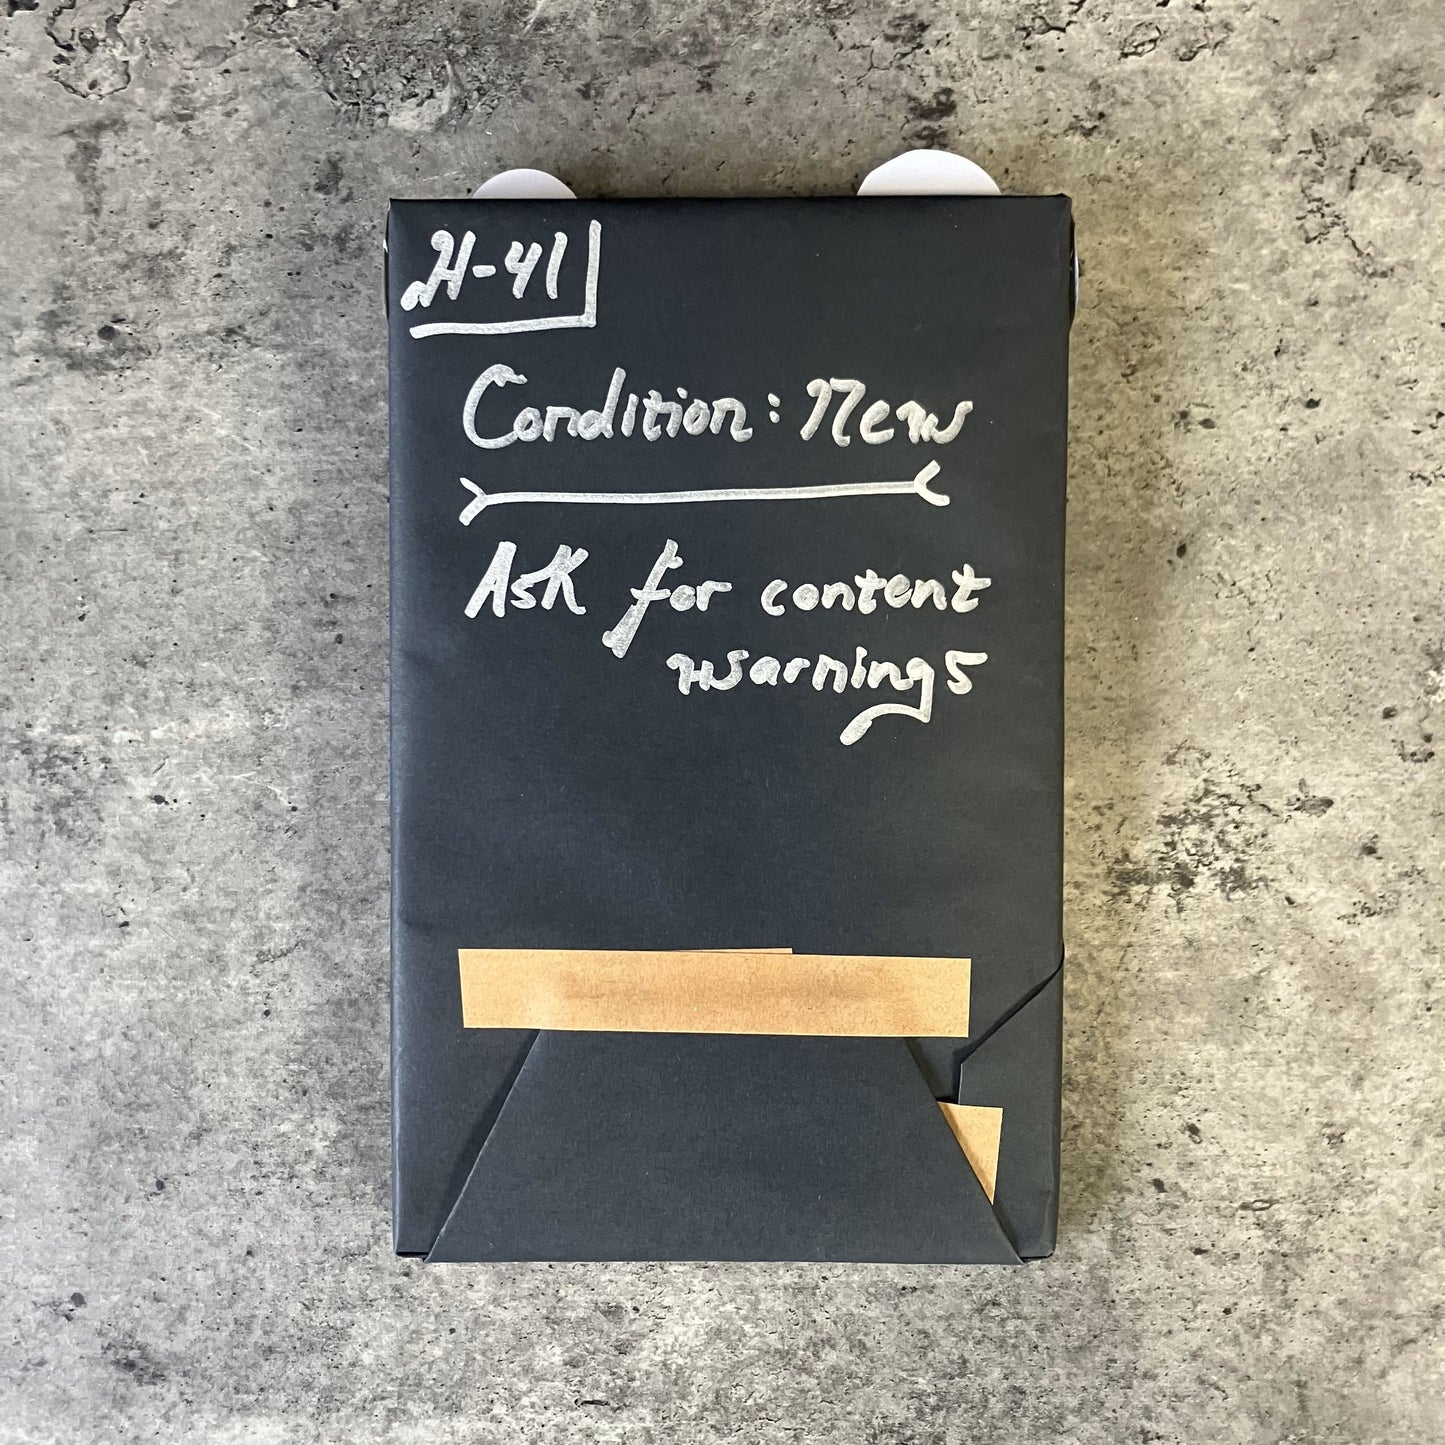 H-41
Condition: New
Ask for content
warnings